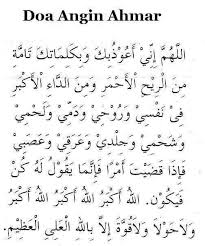 Doa Angin Ahmar
اَللّٰهُمَّ إِنِّيْ أَعُوْذُبِكَ وَبِكَلِمَاتِكَ تَامَّةِ
مِنَ الرِّيْحِ الْأَحْمَرِ وَمِنَ الدَّاءِ الْأَكْبَرِ
فِىْ نَفْسِيْ وَرُوْحِيْ وَدَمِّيْ وَلَحْمِيْ
وَشَحْمِيْ وَجِلْدِيْ وَعَرَقِيْ وَعَصَبِيْ
فَإِذَا قَضَيْتَ أَمْرًا فَإِنَّمَا يَقُوْلُ لَهُ كُنْ
فَيَكُوْنُ. اَللهُ أَكْبَرُ اَللهُ أَكْبَرُ اَللهُ أَكْبَرُ
وَلَاحَوْلَا وَلَاقُوَّةَ إِلَّا بِاللهِ الْعَلِىِّ الْعَظِيْمِ.